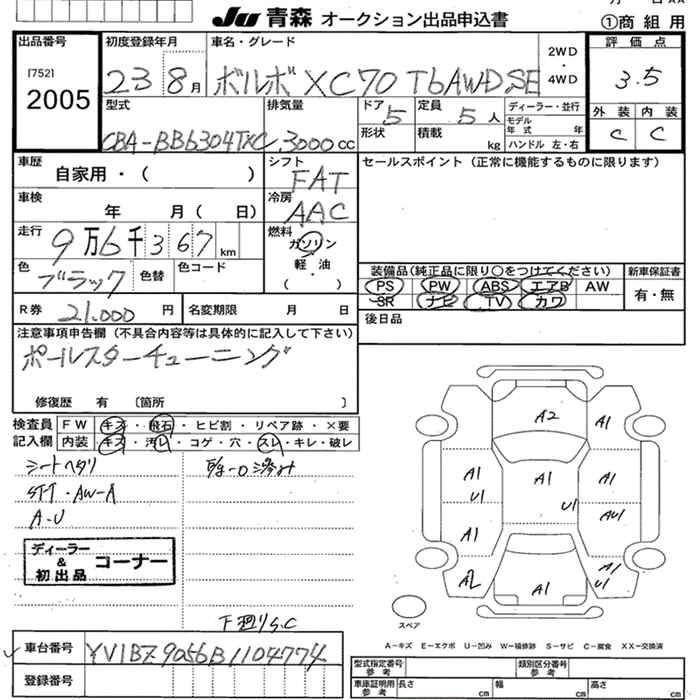 JU 青森 オークション出品申込書
①商組用
出品番号
[752]
2005
初度登録年月
23 8月
車名・グレード
ボルボ XC70 T6AWD SE
2WD
・
4WD
評価点
3.5
外装 内装
C C
型式
CBA-BB6304TXC
排気量
3000cc
ドア 5
形状
定員 5人
積載 kg
ディーラー・並行
モデル年式 年
ハンドル 左・右
車歴
自家用・( )
シフト
FAT
車検
年 月( 日)
冷房
AAC
セールスポイント(正常に機能するものに限ります)
走行
9万6千367km
燃料
ガソリン
・
軽・油
( )
色
ブラック
色替
色コード
装備品(純正品に限り○をつけてください)
PS PW ABS エアB AW
SR ナビ TV カワ
新車保証書
有・無
R券
21.000円
名変期限 月 日
後日品
注意事項申告欄(不具合内容等は具体的に記入して下さい)
ポールスターチューニング
修復歴 有 〔箇所 〕
検査員記入欄
FW キズ・飛石・ヒビ割・リペア跡・×要
内装 キズ・汚レ・コゲ・穴・スレ・キレ・破レ
シートヘタリ
STT・AW-A
A・U
ディーラー
&
初出品
コーナー
下廻りS.C
A2
A1
A1
U1
A1
U1
A1
A1
AU1
A2
A1
A1
U1
スペア
A-キズ E-エクボ U-凹み W-補修跡 S-サビ C-腐食 XX-交換済
車台番号
YV1BZ9056B1104774
登録番号
型式指定番号
参考
類別区分番号
参考
車庫証明用
参考
長さ cm 幅 cm 高さ cm